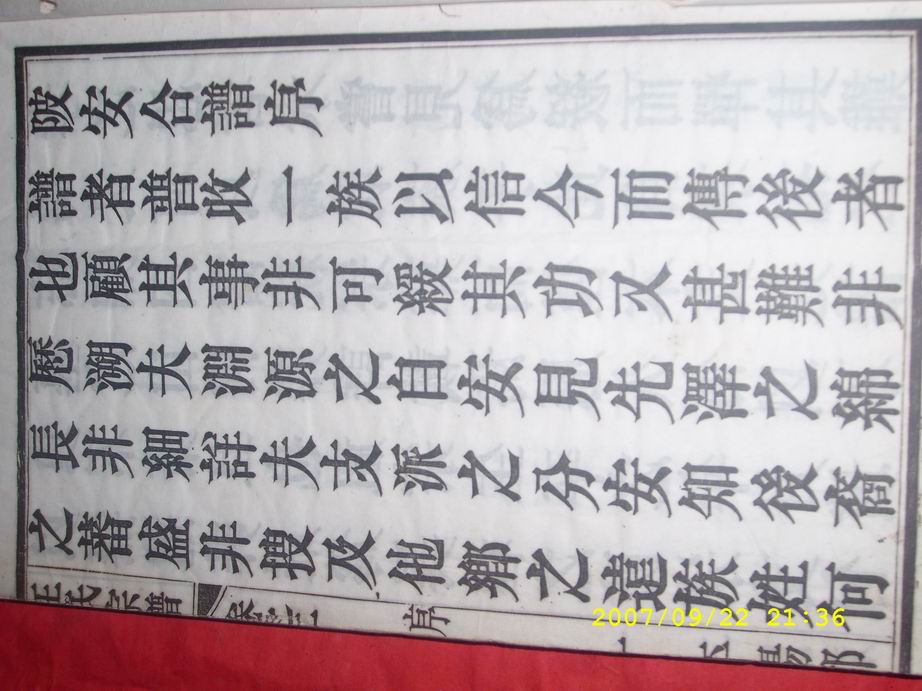 陂安合譜序
譜者普收一族以信今而傳後者
也顧其事非可緩其功又甚難非
歷溯夫淵源之自安見先澤之綿
長非細詳夫支派之分安知後裔
之蕃盛非搜及他鄉之遠族姓何
氏宗譜
序
2007/09/22 21:36